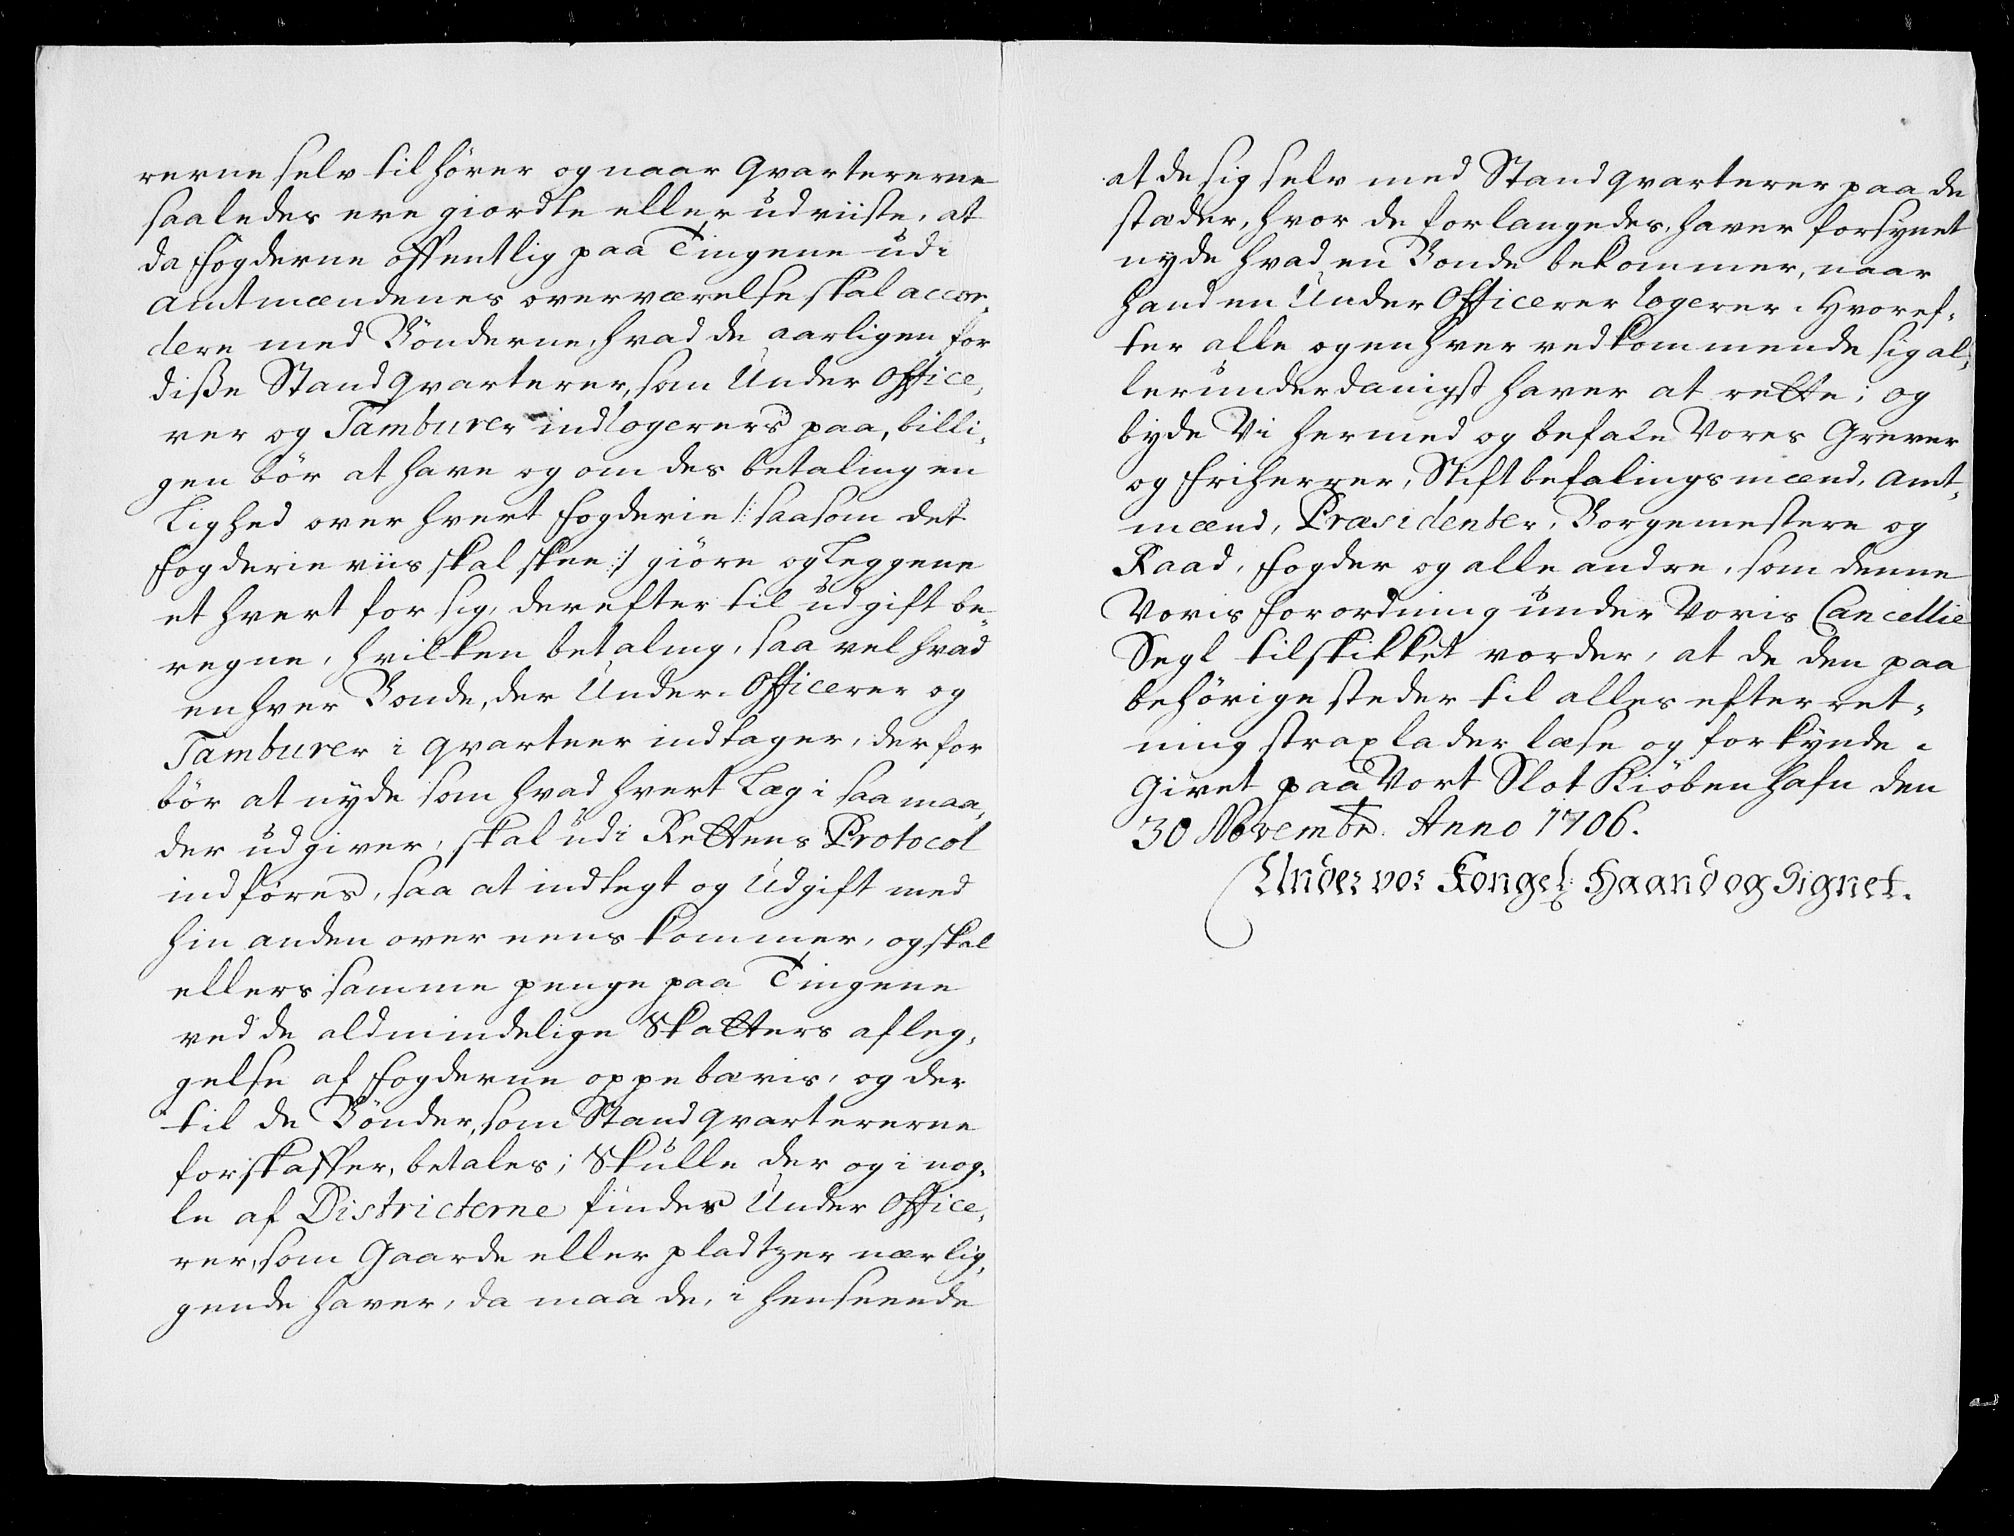 rerne selv tilhörer og naar Qvartererne
saaledes ere giordte eller udviiste, at
da fogderne offentlig paa Tingene udi
Amtmændenes overværelse skal accor-
dere med Bönderne, hvad de aarligen for
disse Stand Qvarterer, som Under Office,
rer og Tamburer indlogerers paa, billi,
gen bör at have og om des betaling en
Lighed over hvert fogderie /: saasom det
fogderie viis skal skee :/ giöre og Leggene
et hvert for sig, derefter til udgift be,
regne, hvilken betaling, saa vel hvad
en hver Bonde, der Under-Officerer og
Tamburer i Qvarteer indtager, derfor
bör at nyde som hvad hvert Læg i saa maa,
der udgiver, skal udi Rettens Protocol
indföres, saa at indtegt og Udgift med
hin anden over eens kommer, og skal
ellers samme penge paa Tingene
ved de aldmindelige Skatters afleg,
gelse af fogderne oppebæris, og der
til de Bönder, som Stand qvartererne
forskaffer, betales; Skulle der og i nog,
le af Districterne findes Under Office,
rer, som Gaarde eller pladtzer nærlig,
gende haver, da maa de, i henseende
at de sig selv med Stand qvarterer paa de
stæder, hvor de forlangedes, haver forsynet
nyde hvad en Bonde bekommer, naar
hand en Under Officerer logerer. Hvoref,
ter alle og en hver vedkommende sig al,
lerunderdanigst haver at rette; og
byde Vi hermed og befale Vores Grever
og friherrer, Stiftbefalingsmænd, Amt,
mænd, Præsidenter, Borgemestere og
Raad, fogder og alle andre, som denne
Voris forordning under Voris Cancellie
Segl tilskikket vorder, at de den paa
behörige steder til alles efterret,
ning strax lader læse og forkynde.
Givet paa Vort Slot Kiöbenhafn den
30 Novembr. Anno 1706.
Under vor Kongel: Haand og Signet.